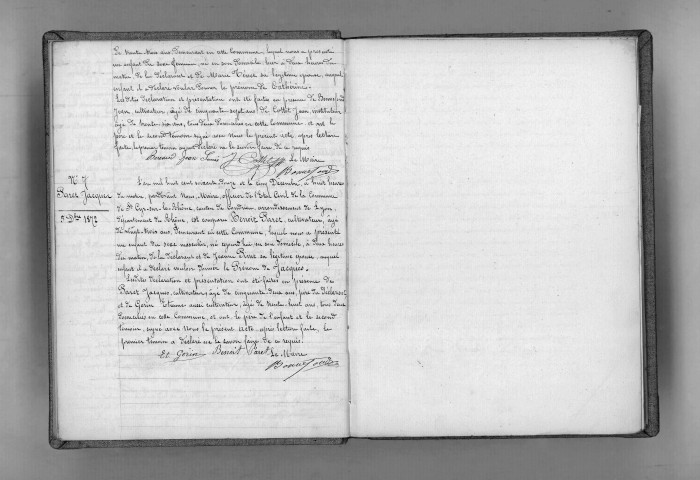 de trente trois ans demeurant en cette Commune, lequel nous a présenté
un enfant du sexe féminin, né en son domicile hier à deux heures du
matin de lui déclarant et de Marie Viret sa légitime épouse, auquel
enfant il a déclaré vouloir donner le prénom de Catherine.
Lesdites déclaration et présentation ont été faites en présence de
Jean, cultivateur, âgé de cinquante sept ans, de Collet Jean, instituteur
âgé de trente six ans, tous deux domiciliés en cette commune et ont le
père et le second témoin signé avec nous le présent acte, après lecture
faite, le premier témoin ayant déclaré ne le savoir faire de ce requis
Jean Louis J Collet Le Maire
N° 7
Paret Jacques
5 Xbre 1872
L'an mil huit cent soixante douze et le cinq Décembre, à huit heures
du matin, pardevant Nous, Maire, officier de l'Etat Civil de la Commune
de St Cyr-sur-le-Rhône, canton de Condrieu, arrondissement de Lyon,
département du Rhône, est comparu Benoît Paret, cultivateur, âgé
de vingt-trois ans, demeurant en cette Commune, lequel nous a présenté
un enfant du sexe masculin, né aujourd'hui en son domicile, à deux heures
du matin, de lui déclarant et de Jeanne Viret sa légitime épouse, auquel
enfant il a déclaré vouloir donner le Prénom de Jacques.
Lesdites déclaration et présentation ont été faites en présence de
Paret Jacques, cultivateur, âgé de cinquante deux ans, père du déclarant
et de Gorin Etienne aussi cultivateur, âgé de trente huit ans, tous deux
domiciliés en cette Commune, et ont, le père de l'enfant et le second
témoin, signé avec Nous le présent acte, après lecture faite, le
premier témoin a déclaré ne le savoir faire de ce requis.
Et Gorin Benoit Paret Le Maire